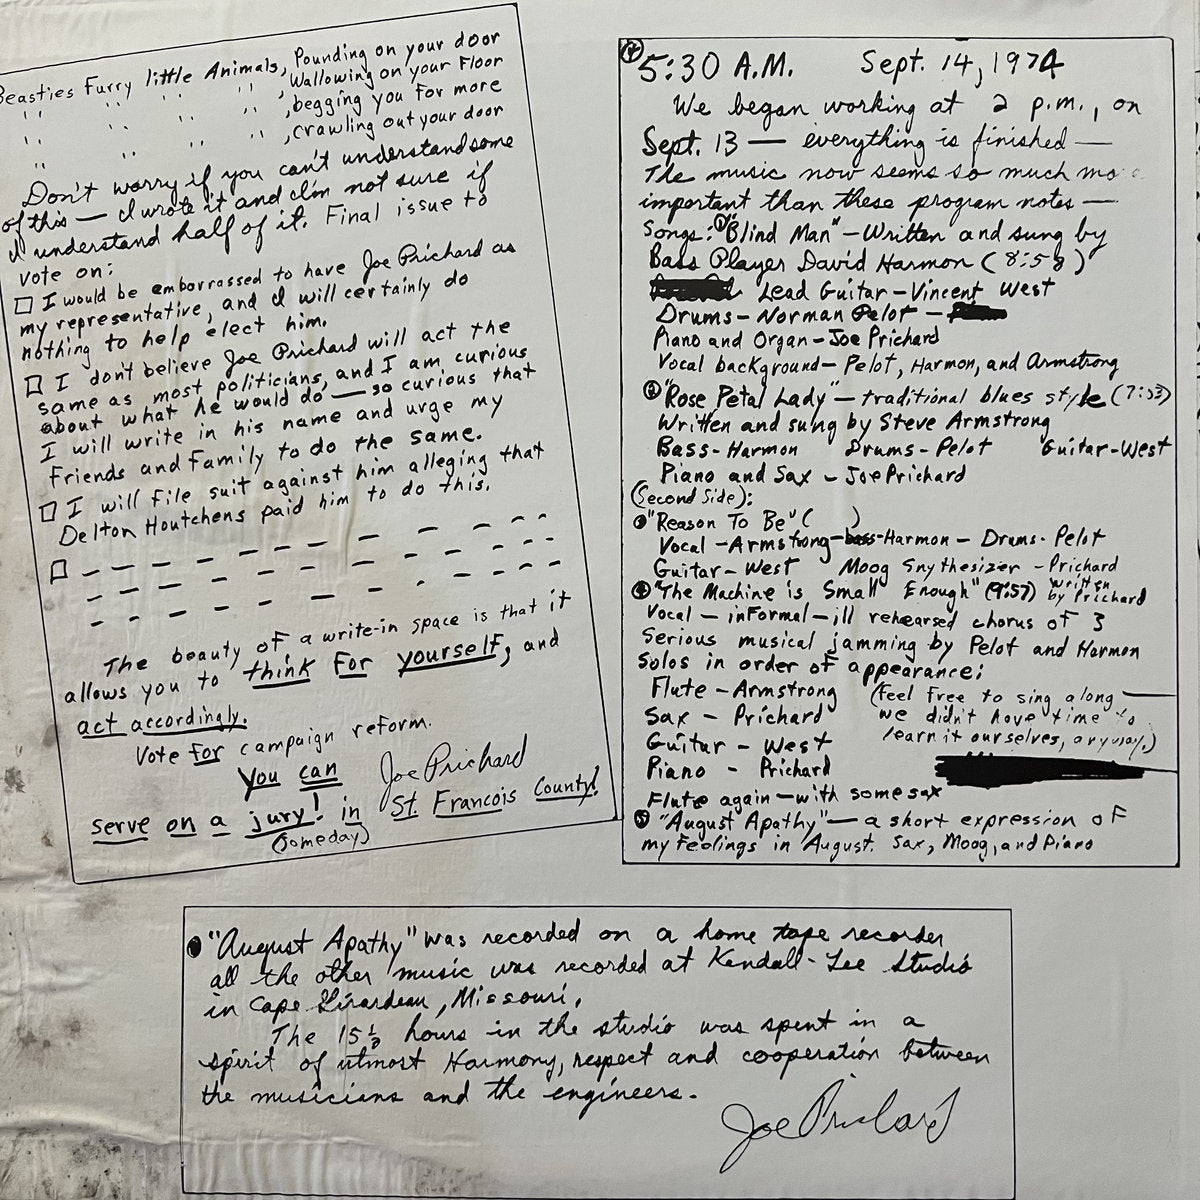 Beasties Furry little Animals, Pounding on your door
'' '' '' '' , Wallowing on your Floor
'' '' '' '' , begging you For more
'' '' '' '' , crawling out your door
Don't worry if you can't understand some
of this — I wrote it and I'm not sure if
I understand half of it. Final issue to
vote on:
□ I would be embarrassed to have Joe Prichard as
my representative, and I will certainly do
nothing to help elect him.
□ I don't believe Joe Prichard will act the
same as most politicians, and I am curious
about what he would do — so curious that
I will write in his name and urge my
Friends and Family to do the same.
□ I will File suit against him alleging that
Delton Houtchens paid him to do this.
□ — — — — — — — — — —
— — — — — — — — — —
— — — — — — — — — —
The beauty of a write-in space is that it
allows you to think For yourself, and
act accordingly.
Vote for campaign reform.
You can Joe Prichard
serve on a jury! in St. Francois County!
(Someday)
5:30 A.M. Sept. 14, 1974
We began working at 2 p.m., on
Sept. 13 — everything is finished —
The music now seems so much
important than these program notes —
Songs: ① "Blind Man" — Written and sung by
Bass Player David Harmon (8:58)
Lead Guitar — Vincent West
Drums — Norman Pelot —
Piano and Organ — Joe Prichard
Vocal background — Pelot, Harmon, and Armstrong
② "Rose Petal Lady" — traditional blues style (7:53)
Written and sung by Steve Armstrong
Bass-Harmon Drums-Pelot Guitar-West
Piano and Sax — Joe Prichard
(Second Side):
③ "Reason To Be" ( )
Vocal — Armstrong — bass-Harmon — Drums- Pelot
Guitar — West Moog Snythesizer — Prichard
④ "The Machine is Small Enough" (9:57) written by Prichard
Vocal — inFormal — ill rehearsed chorus of 3
Serious musical jamming by Pelot and Harmon
Solos in order of appearance:
Flute — Armstrong (feel free to sing along —
Sax — Prichard we didn't have time to
Guitar — West learn it ourselves, anyway.)
Piano — Prichard
Flute again — with some sax
⑤ "August Apathy" — a short expression of
my Feelings in August. Sax, Moog, and Piano
"August Apathy" was recorded on a home tape recorder
all the other music was recorded at Kendall-Lee Studio
in Cape Girardeau, Missouri.
The 15 1/2 hours in the studio was spent in a
spirit of utmost Harmony, respect and cooperation between
the musicians and the engineers.
Joe Prichard